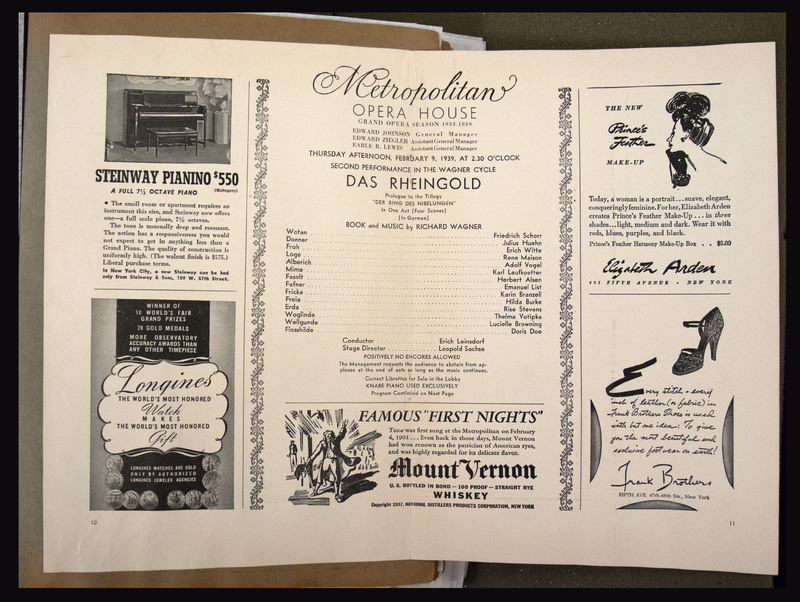 STEINWAY PIANINO $550
A FULL 7⅓ OCTAVE PIANO (Mahogany)
● The small room or apartment requires an
instrument this size, and Steinway now offers
one—a full scale piano, 7⅓ octaves.
The tone is unusually deep and resonant.
The action has a responsiveness you would
not expect to get in anything less than a
Grand Piano. The quality of construction is
uniformly high. (The walnut finish is $575.)
Liberal purchase terms.
In New York City, a new Steinway can be had
only from Steinway & Sons, 109 W. 57th Street.
WINNER OF
10 WORLD'S FAIR
GRAND PRIZES
28 GOLD MEDALS
MORE OBSERVATORY
ACCURACY AWARDS THAN
ANY OTHER TIMEPIECE
Longines
THE WORLD'S MOST HONORED
Watch
MAKES
THE WORLD'S MOST HONORED
Gift
LONGINES WATCHES ARE SOLD
ONLY BY AUTHORIZED
LONGINES JEWELER AGENCIES
10
Metropolitan
OPERA HOUSE
GRAND OPERA SEASON 1938-1939
EDWARD JOHNSON General Manager
EDWARD ZIEGLER Assistant General Manager
EARLE R. LEWIS Assistant General Manager
THURSDAY AFTERNOON, FEBRUARY 9, 1939, AT 2.30 O'CLOCK
SECOND PERFORMANCE IN THE WAGNER CYCLE
DAS RHEINGOLD
Prologue to the Trilogy
"DER RING DES NIBELUNGEN"
In One Act (Four Scenes)
(In German)
BOOK and MUSIC by RICHARD WAGNER
Wotan Friedrich Schorr
Donner Julius Huehn
Froh Erich Witte
Loge Rene Maison
Alberich Adolf Vogel
Mime Karl Laufkoetter
Fasolt Herbert Alsen
Fafner Emanuel List
Fricka Karin Branzell
Freia Hilda Burke
Erda Rise Stevens
Woglinde Thelma Votipka
Wellgunde Lucielle Browning
Flosshilde Doris Doe
Conductor Erich Leinsdorf
Stage Director Leopold Sachse
POSITIVELY NO ENCORES ALLOWED
The Management requests the audience to abstain from ap-
plause at the end of acts so long as the music continues.
Correct Librettos for Sale in the Lobby
KNABE PIANO USED EXCLUSIVELY
Program Continued on Next Page
FAMOUS "FIRST NIGHTS"
Tosca was first sung at the Metropolitan on February
4, 1901... Even back in those days, Mount Vernon
had won renown as the patrician of American ryes,
and was highly regarded for its delicate flavor.
Mount Vernon
U. S. BOTTLED IN BOND — 100 PROOF — STRAIGHT RYE
WHISKEY
Copyright 1937, NATIONAL DISTILLERS PRODUCTS CORPORATION, NEW YORK
THE NEW
Prince's
Feather
MAKE-UP
Today, a woman is a portrait...suave, elegant,
conqueringly feminine. For her, Elizabeth Arden
creates Prince's Feather Make-Up...in three
shades...light, medium and dark. Wear it with
reds, blues, purples, and black.
Prince's Feather Harmony Make-Up Box . . $5.00
Elizabeth Arden
691 FIFTH AVENUE • NEW YORK
Every stitch - every
inch of leather (or fabric) in
Frank Brothers Shoes is used
with but one idea: To give
you the most beautiful and
exclusive footwear on earth!
Frank Brothers
FIFTH AVE. 47th-48th Sts., New York
11